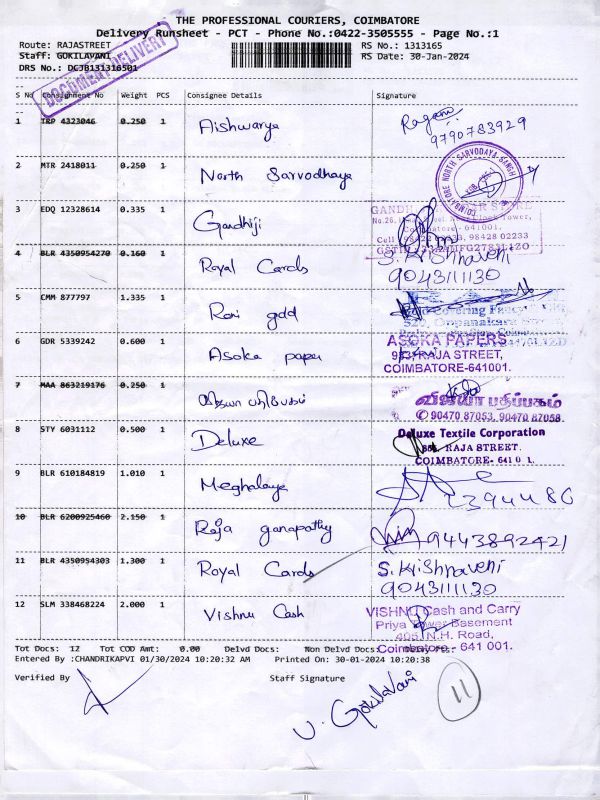 THE PROFESSIONAL COURIERS, COIMBATORE
Delivery Runsheet - PCT - Phone No.:0422-3505555 - Page No.:1
Route: RAJASTREET RS No.: 1313165
Staff: GOKILAVANI RS Date: 30-Jan-2024
DRS No.: DCJB131316501
DOCUMENT DELIVERY
S No Consignment No Weight PCS Consignee Details Signature
1 TRP 4323046 0.250 1 Aishwarya Ragani
9790783929
2 MTR 2418011 0.250 1 North Sarvodhaya COIMBATORE NORTH SARVODAYA SANGH
3 EDQ 12328614 0.335 1 Gandhiji
Coimbatore-641001.
4 BLR 4350954270 0.160 1 Royal Cards S. Krishnaveni
9043111130
5 CMM 877797 1.335 1 Rani gdd
6 GDR 5339242 0.600 1 Asoka paper ASOKA PAPERS
RAJA STREET,
COIMBATORE-641001.
7 MAA 863219176 0.250 1 விஜயா பதிப்பகம் விஜயா பதிப்பகம்
90470 87053, 90470 87058
8 STY 6031112 0.500 1 Deluxe Deluxe Textile Corporation
RAJA STREET.
COIMBATORE- 641 0 1.
9 BLR 610184819 1.010 1 Meghalaya
2394486
10 BLR 6200925460 2.150 1 Raja ganapathy 9443892421
11 BLR 4350954303 1.300 1 Royal Cards S. Krishnaveni
9043111130
12 SLM 338468224 2.000 1 Vishnu Cash VISHNU Cash and Carry
Priya Tower Basement
405, N.H. Road,
Coimbatore - 641 001.
Tot Docs: 12 Tot COD Amt: 0.00 Delvd Docs: Non Delvd Docs:
Entered By :CHANDRIKAPVI 01/30/2024 10:20:32 AM Printed On: 30-01-2024 10:20:38
Verified By Staff Signature
V. Gokilavani
11